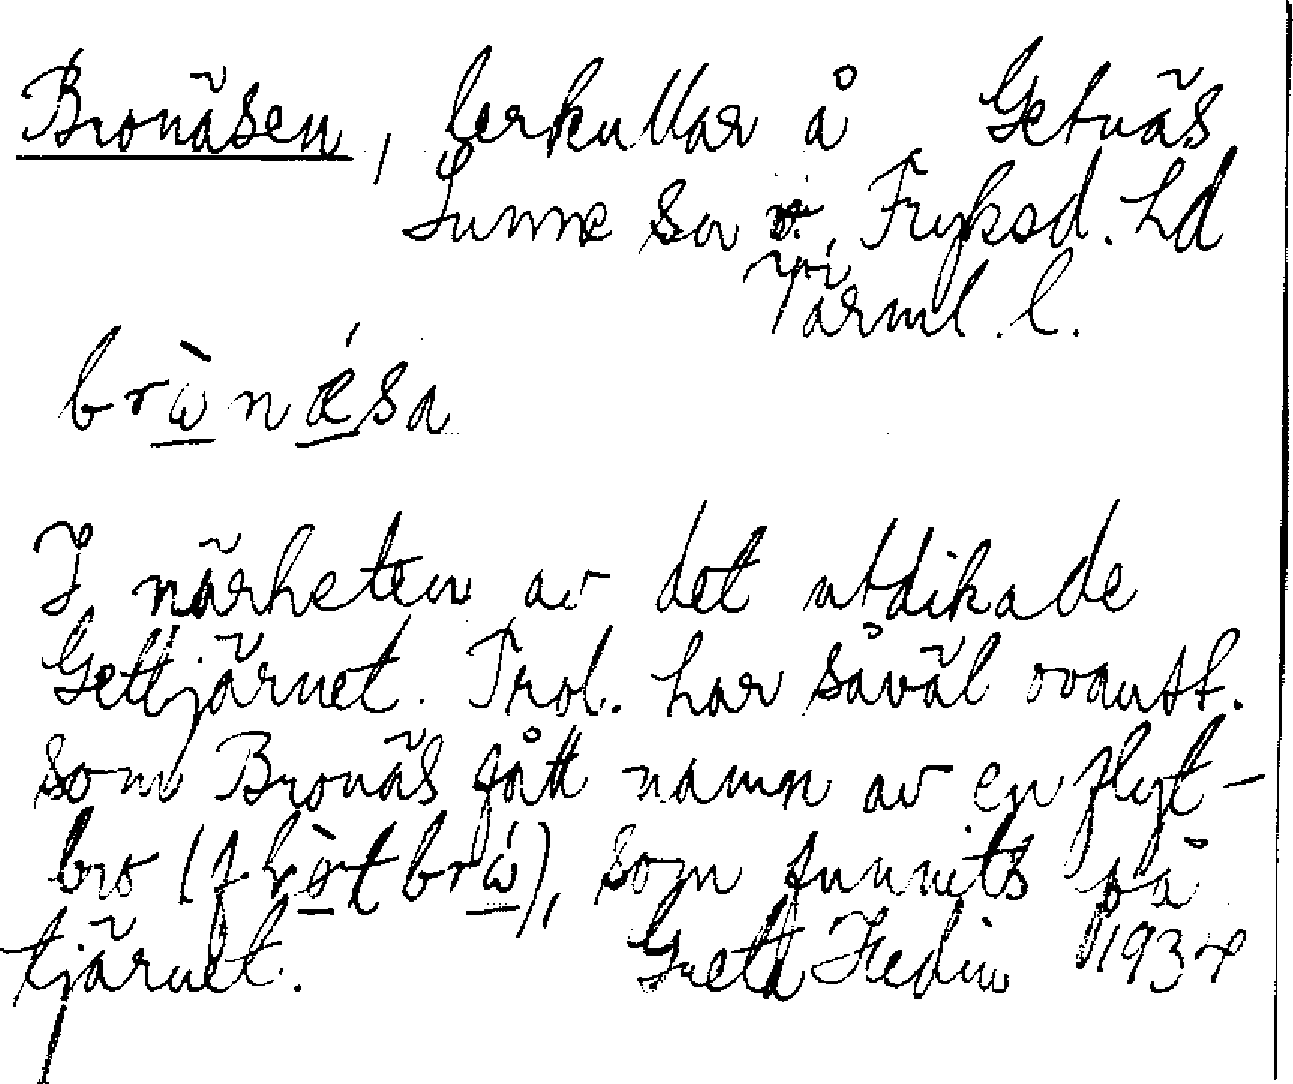 Bronäsen, lerkullar å Getnäs
Sunne sn, Fryksd. hd
Värml. l.
brὼnǽsa
I närheten av det utdikade
Gettjärnet. Trol. har såväl ovanst.
som Bronäs fått namn av en flyt-
bro (                 ), som funnits på
tjärnet. Greta Hedin 1934